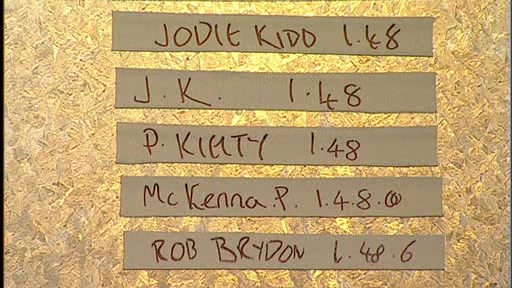 JODIE KIDD 1.48
J.K. 1.48
P. KIELTY 1.48
McKenna.P. 1.4.8.0
ROB BRYDON 1.48.6